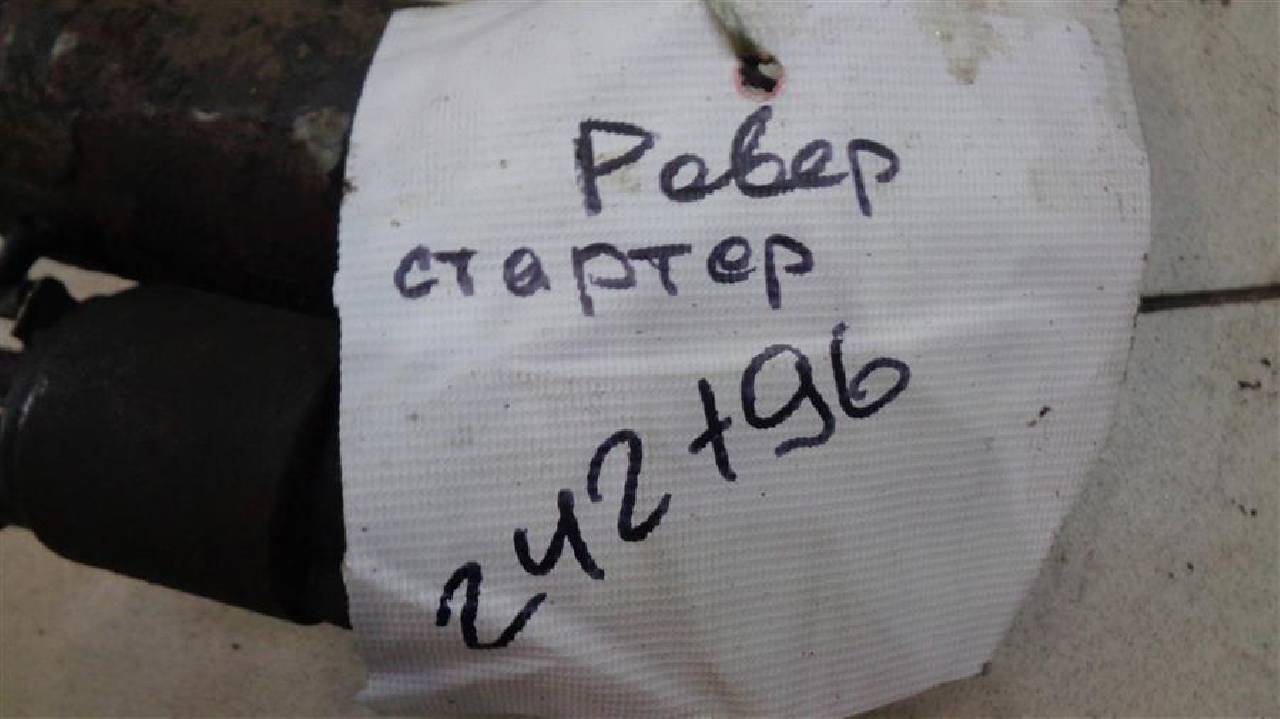 Ровер
стартер
242+96